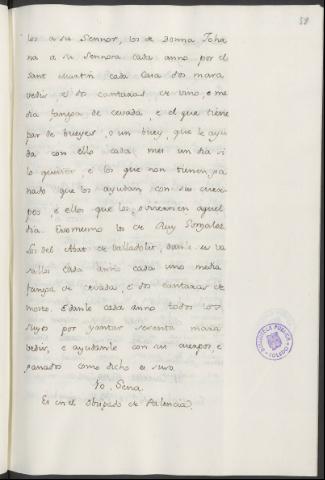 58
los a su Sennor, los de Donna Joha
na a su Sennora cada anno por el
sant Martin cada casa dos mara
vedis, e dos cantaras de vino, e me
dia fanega de cevada, e el que tiene
par de bueyes, o un buey, que le ayu
da con ello cada mes un dia si
lo quisier, e los que non tienen ga
nado que los ayudan con sus cuer
pos, e ellos que los goviernen aquel
dia. Eso mesmo los de Ruy Gonzalez
Los del Abat de Valladolit, danle sus va
sallos cada anno cada uno media
fanega de cevada, e dos cantaras de
mosto. E danle cada anno todos los
suyos por yantar sesenta mara
vedis, e ayudanle con sus cuerpos, e
ganados como dicho es suso
Fo. Sena.
Es en el Obispado de Palencia.
BIBLIOTECA PUBLICA
TOLEDO